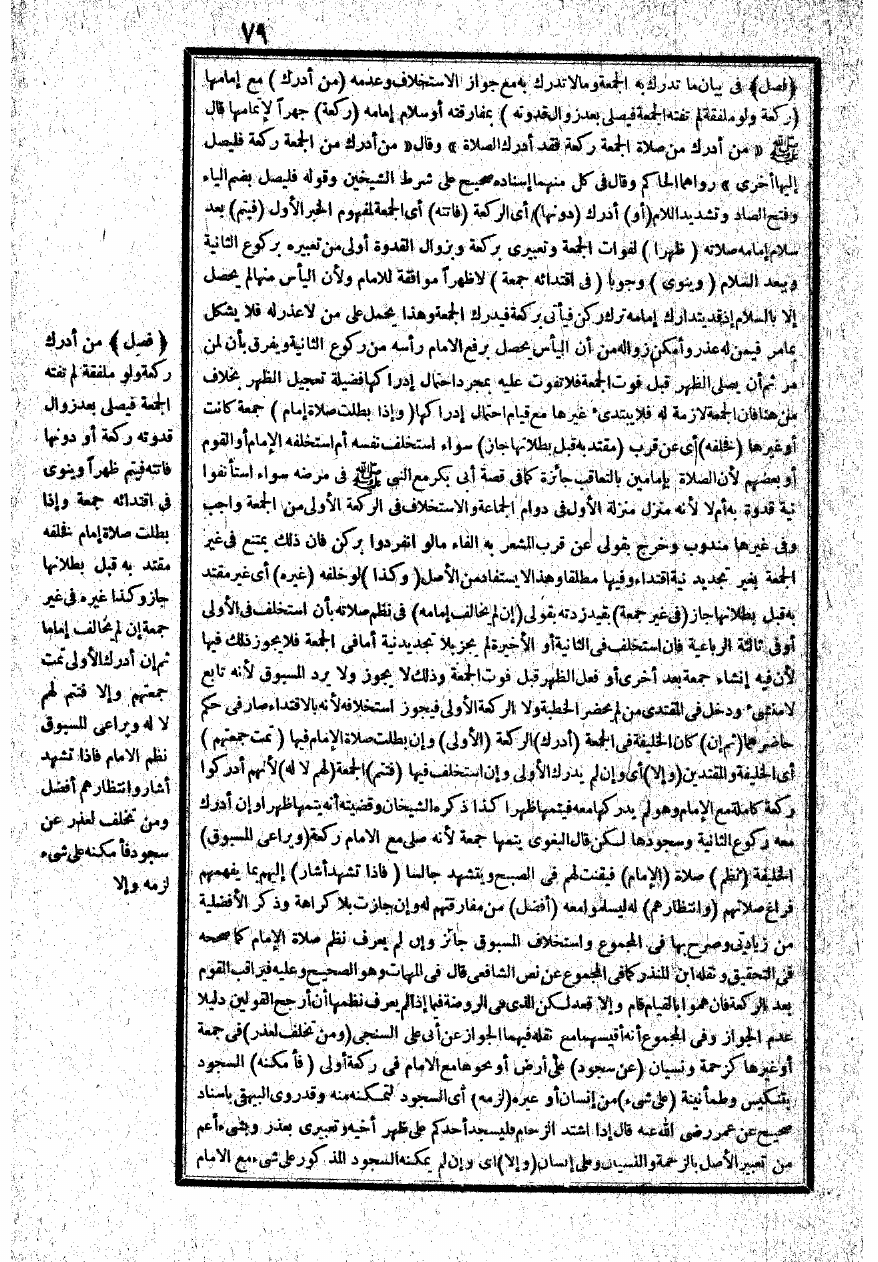 ٧٩
﴿فصل﴾ فى بيان ما تدرك به الجمعة وما لا تدرك به مع جواز الاستخلاف وعدمه (من أدرك) مع إمامها
(ركعة ولو ملفقة لم تفته الجمعة فيصلى بعد زوال قدوته) بمفارقته أو سلام إمامه (ركعة) جهراً لإتمامها قال
ﷺ «من أدرك من صلاة الجمعة ركعة فقد أدرك الصلاة» وقال «من أدرك من الجمعة ركعة فليصل
إليها أخرى» رواهما الحاكم وقال فى كل منهما إسناده صحيح على شرط الشيخين وقوله فليصل بضم الياء
وفتح الصاد وتشديد اللام (أو) أدرك (دونها) أى الركعة (فاتته) أى الجمعة لمفهوم الخبر الأول (فيتم) بعد
سلام إمامه صلاته (ظهرا) لفوات الجمعة وتعبيرى بركعة وبزوال القدوة أولى من تعبيره بركوع الثانية
وبعد السلام (وينوى) وجوبا (فى اقتدائه جمعة) لا ظهراً موافقة للامام ولأن اليأس منها لم يحصل
إلا بالسلام إذ قد يتدارك إمامه ترك ركن فيأتى بركعة فيدرك الجمعة وهذا يحمل على من لا عذر له فلا يشكل
بمامر فيمن له عذر وأمكن زواله من أن اليأس يحصل برفع الامام رأسه من ركوع الثانية ويفرق بأن لمن
مر ثم أن يصلى الظهر قبل فوت الجمعة فلا تفوت عليه بمجرد احتمال إدراكها فضيلة تعجيل الظهر بخلاف
من هنا فان الجمعة لازمة له فلا يبتدىء غيرها مع قيام احتمال إدراكها (وإذا بطلت صلاة إمام) جمعة كانت
أو غيرها (فخلفه) أى عن قرب (مقتد به قبل بطلانها جاز) سواء استخلف نفسه أم استخلفه الإمام أو القوم
أو بعضهم لأن الصلاة بإمامين بالتعاقب جائزة كما فى قصة أبى بكر مع النبى ﷺ فى مرضه سواء استأنفوا
نية قدوة به أم لا لأنه منزل منزلة الأول فى دوام الجماعة والاستخلاف فى الركعة الأولى من الجمعة واجب
وفى غيرها مندوب وخرج بقولى عن قرب المشعر به الفاء مالو انفردوا بركن فان ذلك يمتنع فى غير
الجمعة بغير تجديد نية اقتداء وفيها مطلقا وهذا لا يستفاد من الأصل (وكذا) لو خلفه (غيره) أى غير مقتد
به قبل بطلانها جاز (فى غير جمعة) بقيد زدته بقولى (إن لم يخالف إمامه) فى نظم صلاته بأن استخلف فى الأولى
أو فى ثالثة الرباعية فان استخلف فى الثانية أو الأخيرة لم يجز بلا تجديد نية أما فى الجمعة فلا يجوز ذلك فيها
لأن فيه إنشاء جمعة بعد أخرى أو فعل الظهر قبل فوت الجمعة وذلك لا يجوز ولا يرد المسبوق لأنه تابع
لا منشىء ودخل فى المقتدى من لم يحضر الخطبة ولا الركعة الأولى فيجوز استخلافه لأنه بالاقتداء صار فى حكم
حاضرهما (ثم إن) كان الخليفة فى الجمعة (أدرك) الركعة (الأولى) وإن بطلت صلاة الإمام فيها (تمت جمعتهم)
أى الخليفة والمقتدين (وإلا) أى وإن لم يدرك الأولى وإن استخلف فيها (فتتم) الجمعة (لهم لا له) لأنهم أدركوا
ركعة كاملة مع الإمام وهو لم يدركها معه فيتمها ظهرا كذا ذكره الشيخان وقضيته أنه يتمها ظهر ا وإن أدرك
معه ركوع الثانية وسجودها لـكن قال البغوى يتمها جمعة لأنه صلى مع الامام ركعة (ويراعى المسبوق)
الخليفة (نظم) صلاة (الإمام) فيقنت لهم فى الصبح ويتشهد جالسا (فاذا تشهد أشار) إليهم بما يفهمهم
فراغ صلاتهم (وانتظارهم) له ليسلموا معه (أفضل) من مفارقتهم له وإن جازت بلا كراهة وذكر الأفضلية
من زيادتى وصرح بها فى المجموع واستخلاف المسبوق جائز وإن لم يعرف نظم صلاة الإمام كما صححه
فى التحقيق ونقله ابن المنذر كما فى المجموع عن نص الشافعى قال فى المهمات وهو الصحيح وعليه فيراقب القوم
بعد الركعة فان هموا بالقيام قام وإلا قعد لـكن الذى فى الروضة فيما إذا لم يعرف نظمها أن أرجح القولين دليلا
عدم الجواز وفى المجموع أنه أقيسهما مع نقله فيهما الجواز عن أبى على السنجى (ومن تخلف لعذر) فى جمعة
أو غيرها كزحمة ونسيان (عن سجود) على أرض أو نحوها مع الامام فى ركعة أولى (فأمكنه) السجود
بتنكيس وطمأنينة (على شىء) من إنسان أو غيره (لزمه) أى السجود لتمـكنه منه وقد روى البيهقى باسناد
صحيح عن عمر رضى الله عنه قال إذا اشتد الزحام فليسجد أحدكم على ظهر أخيه وتعبيرى بعذر وبشىء أعم
من تعبير الأصل بالزحمة والنسيان وعلى إنسان (وإلا) أى وإن لم يمكنه السجود المذكور على شىء مع الامام
﴿فصل﴾ من أدرك
ركعة ولو ملفقة لم تفته
الجمعة فيصلى بعد زوال
قدوته ركعة أو دونها
فاتته فيتم ظهراً وينوى
فى اقتدائه جمعة وإذا
بطلت صلاة إمام فخلفه
مقتد به قبل بطلانها
جاز وكذا غيره فى غير
جمعة إن لم يخالف إماما
ثم إن أدرك الأولى تمت
جمعتهم وإلا فتتم لهم
لا له ويراعى المسبوق
نظم الامام فاذا تشهد
أشار وانتظارهم أفضل
ومن تخلف لعذر عن
سجود فأمكنه على شىء
لزمه وإلا